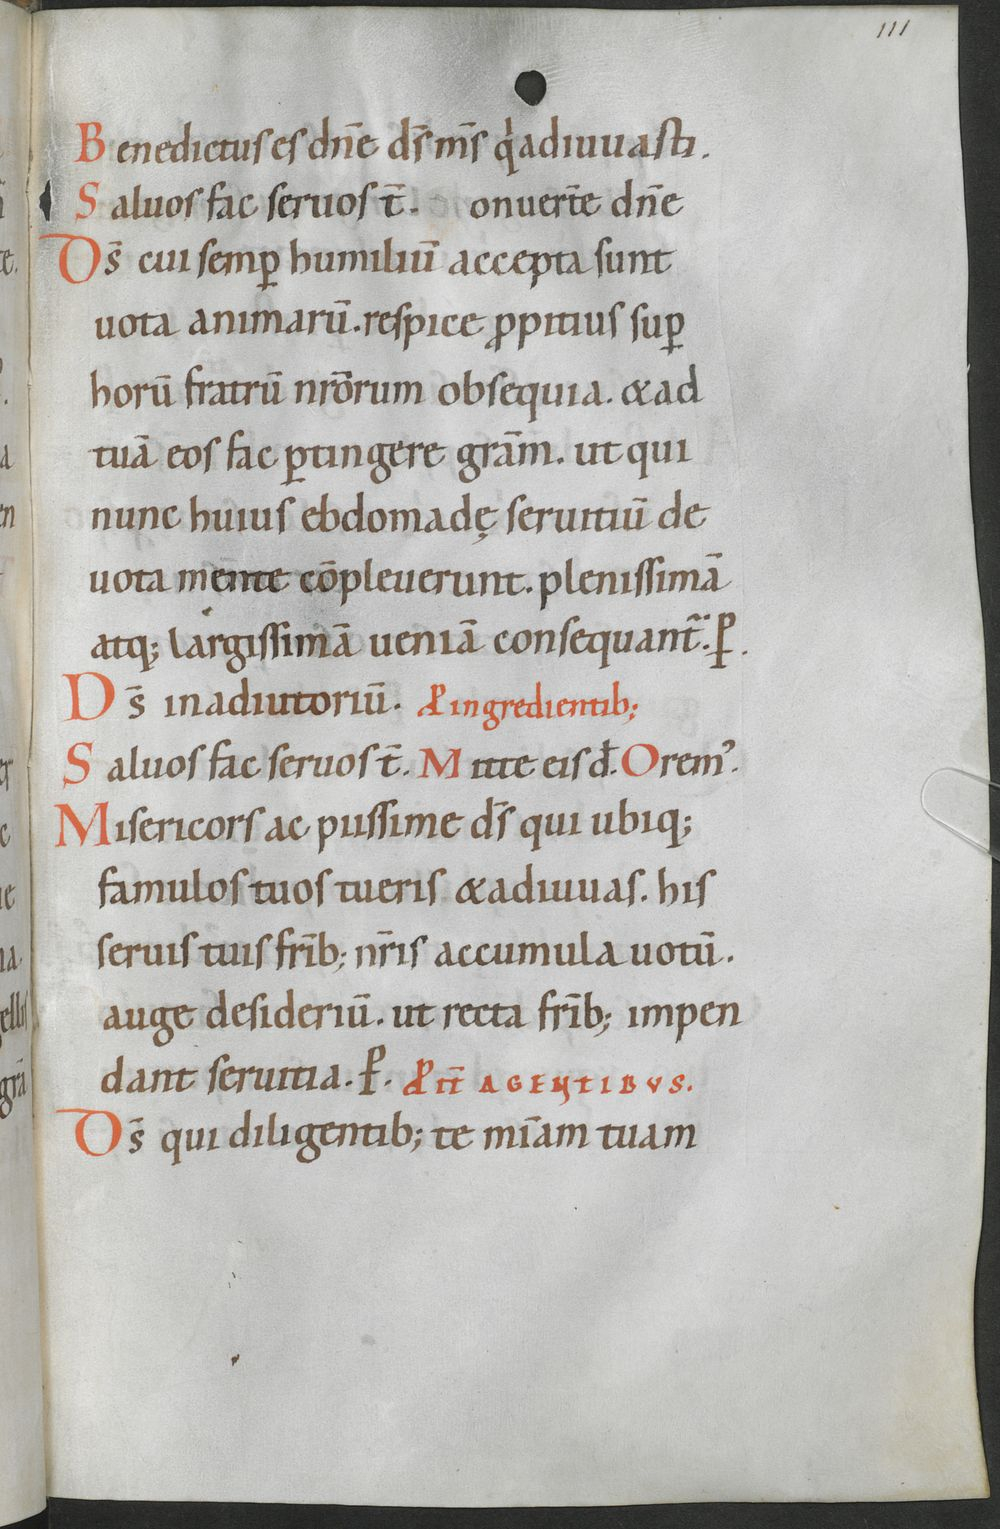 111
Benedictus es dn̄e ds̄ ms̄ qi adiuuasti.
Saluos fac seruos t̄. onuert̄e dn̄e
Ds̄ cui semꝑ humiliū accepta sunt
uota animarū. respice ꝓpitius suꝑ
horū fratrū nrō̄rum obsequia. & ad
tuā eos fac ꝑtingere grām. ut qui
nunc huius ebdomadę seruitiū de
uota mente cōpleuerunt. plenissimā
atq; largissimā ueniā consequant̄. ꝑ.
Ds̄ in adiutoriū. ꝓ ingredientib;
Saluos fac seruos t̄. Mitte eis đ. Orem᾽.
Misericors ac piissime ds̄ qui ubiq;
famulos tuos tueris & adiuuas. his
seruis tuis frīb; nr̄is accumula uotū.
auge desideriū. ut recta frīb; impen
dant seruitia. ꝑ. ꝓ it̄ AGENTIBVS.
Ds̄ qui diligentib; te mīam tuam